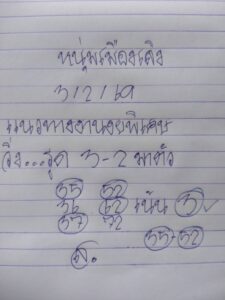 หนุ่มเมืองเลิง
3/2/69
แนวทางงานงวยพิเศษ
วิ่ง...รูด 3-2 มาตัว
35 52
36 62 เน้น 3
37 72
35-52
ส.